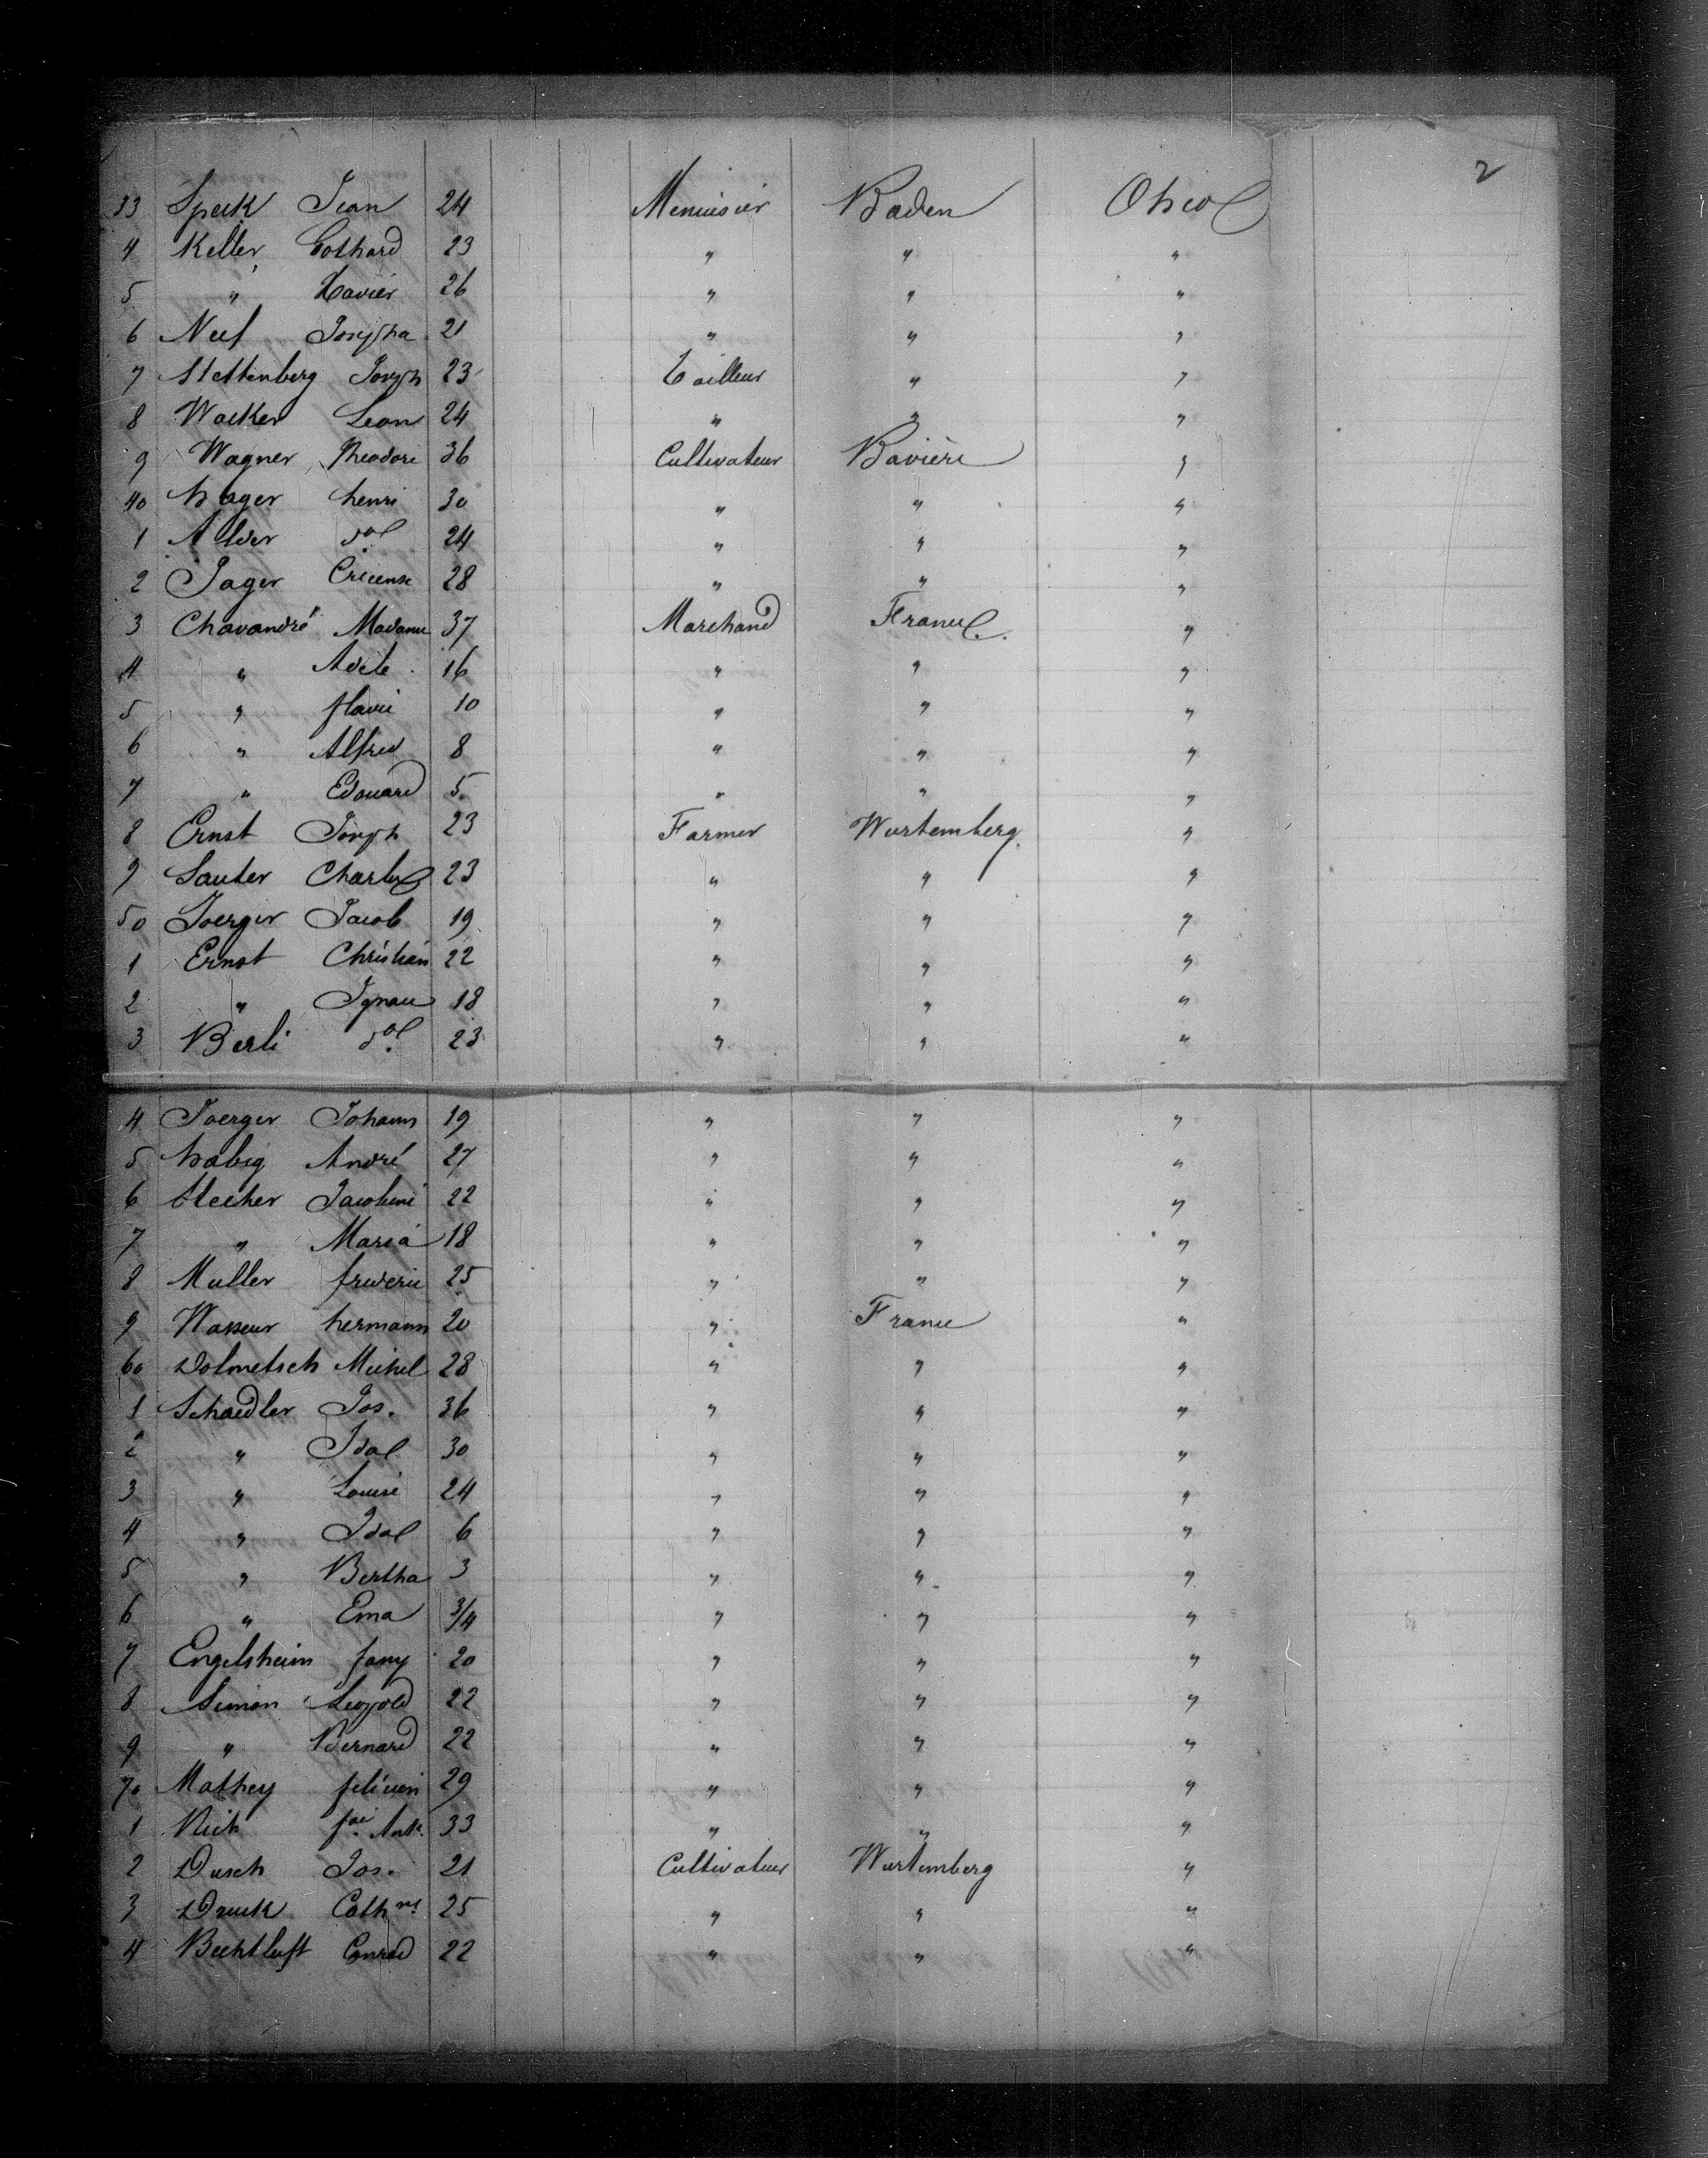 2
33 Speck Jean 24 Menuisier Baden Ohio
4 Keller Gothard 23 " " "
5 " Xavier 26 " " "
6 Neef Josepha 21 " " "
7 Stettenberg Joseph 23 Tailleur " "
8 Walker Leon 24 " " "
9 Wagner Theodore 36 Cultivateur Bavière "
40 hager henri 30 " " "
1 Alder do 24 " " "
2 Jager 28 " " "
3 Chavandré Madame 37 Marchand France "
4 " Adele 16 " " "
5 " flavie 10 " " "
6 " Alfred 8 " " "
7 " Edouard 5 " " "
8 Ernst Joseph 23 Farmer Wurtemberg "
9 Sauter Charles 23 " " "
50 Joerger Jacob 19 " " "
1 Ernst Christian 22 " " "
2 " Ignace 18 " " "
3 Berli do 23 " " "
4 Joerger Johann 19 " " "
5 habig André 27 " " "
6 Jacobine 22 " " "
7 " Maria 18 " " "
8 Muller frederic 25 " " "
9 Wasseur hermann 20 " France "
60 Dolmetsch Michel 28 " " "
1 Schaedler Jos. 36 " " "
2 " Ida 30 " " "
3 " Louise 24 " " "
4 " Ida 6 " " "
5 " Bertha 3 " " "
6 " Ema 3/4 " " "
7 Engelsheim fany 20 " " "
8 Simon Leopold 22 " " "
9 " Bernard 22 " " "
70 Mathey 29 " " "
1 Ant. 33 " " "
2 Dusch Jos. 21 Cultivateur Wurtemberg "
3 Druck Cathne 25 " " "
4 Bechtluft Conrad 22 " " "